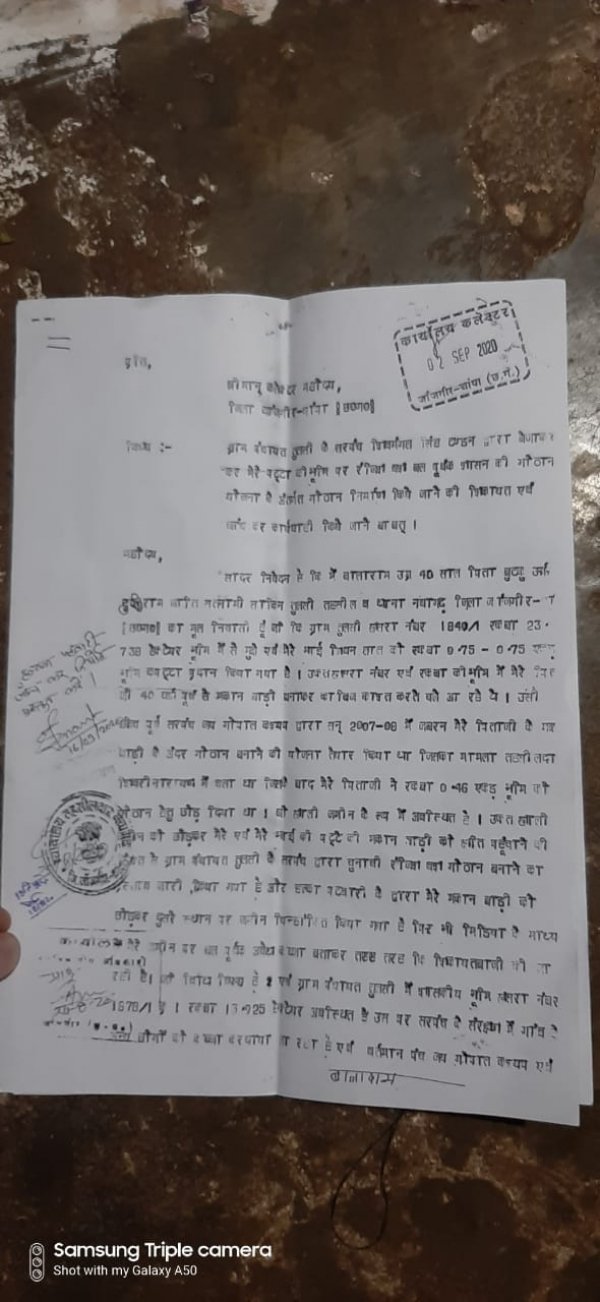 कार्यालय कलेक्टर
02 SEP 2020
जांजगीर-चांपा (छ.ग.)
प्रति,
श्रीमान् कलेक्टर महोदय,
जिला जांजगीर-चांपा [छ0ग0]
विषय :- ग्राम पंचायत तुलसी के सरपंच सिंह टण्डन द्वारा
कर मेरे पट्टा की भूमि पर रंजिश वश बल पूर्वक शासन की गौठान
योजना के अंतर्गत गौठान निर्माण किये जाने की शिकायत एवं
जांच कर कार्यवाही किये जाने बाबत् ।
महोदय,
सादर निवेदन है कि मैं बालाराम उम्र 40 साल पिता
जाति सतनामी साकिन तुलसी तहसील व थाना नवागढ़ जिला जांजगीर-
[छ0ग0] का मूल निवासी हूँ जो कि ग्राम तुलसी खसरा नंबर 1840/1 रकबा 23.
738 हेक्टेयर भूमि में से मुझे एवं मेरे भाई जिवन लाल को रकबा 0.75 - 0.75 एकड़
भूमि का पट्टा प्रदान किया गया है । उक्त खसरा नंबर एवं रकबा की भूमि में मेरे पिता
जी 40 वर्ष पूर्व से मकान बाड़ी बनाकर काबिज काश्त करते चले आ रहे थे । उसी
पूर्व सरपंच जय गोपाल कश्यप द्वारा सन् 2007-08 में जबरन मेरे पिताजी के
बाड़ी के अंदर गौठान बनाने की योजना तैयार किया था जिसका मामला तहसीलदार
शिवरीनारायण में चला था जिसके बाद मेरे पिताजी ने रकबा 0.46 एकड़ भूमि को
गौठान हेतु छोड़ दिया था । जो खाली जमीन के रूप में अवस्थित है । उक्त खाली
जमीन को छोड़कर मेरे एवं मेरे भाई की पट्टे की मकान बाड़ी को क्षति पहुँचाने की
से ग्राम पंचायत तुलसी के सरपंच द्वारा चुनावी रंजिश वश गौठान बनाने का
जारी किया गया है और हल्का पटवारी के द्वारा मेरे मकान बाड़ी को
छोड़कर दुसरे स्थान पर जमीन चिन्हांकित किया गया है फिर भी मिडिया के माध्य
मेरे जमीन पर बल पूर्वक अवैध कब्जा बताकर तरह तरह कि शिकायतबाजी की जा
रही है। जो विधि विरूद्ध है । एवं ग्राम पंचायत तुलसी में शासकीय भूमि खसरा नंबर
1678/1 रकबा 13.925 हेक्टेयर अवस्थित है उस पर सरपंच के संरक्षण में गांव के
अन्य लोगों को कब्जा करवाया जा रहा है एवं वर्तमान पंच जय गोपाल कश्यप एवं
बालाराम
Samsung Triple camera
Shot with my Galaxy A50